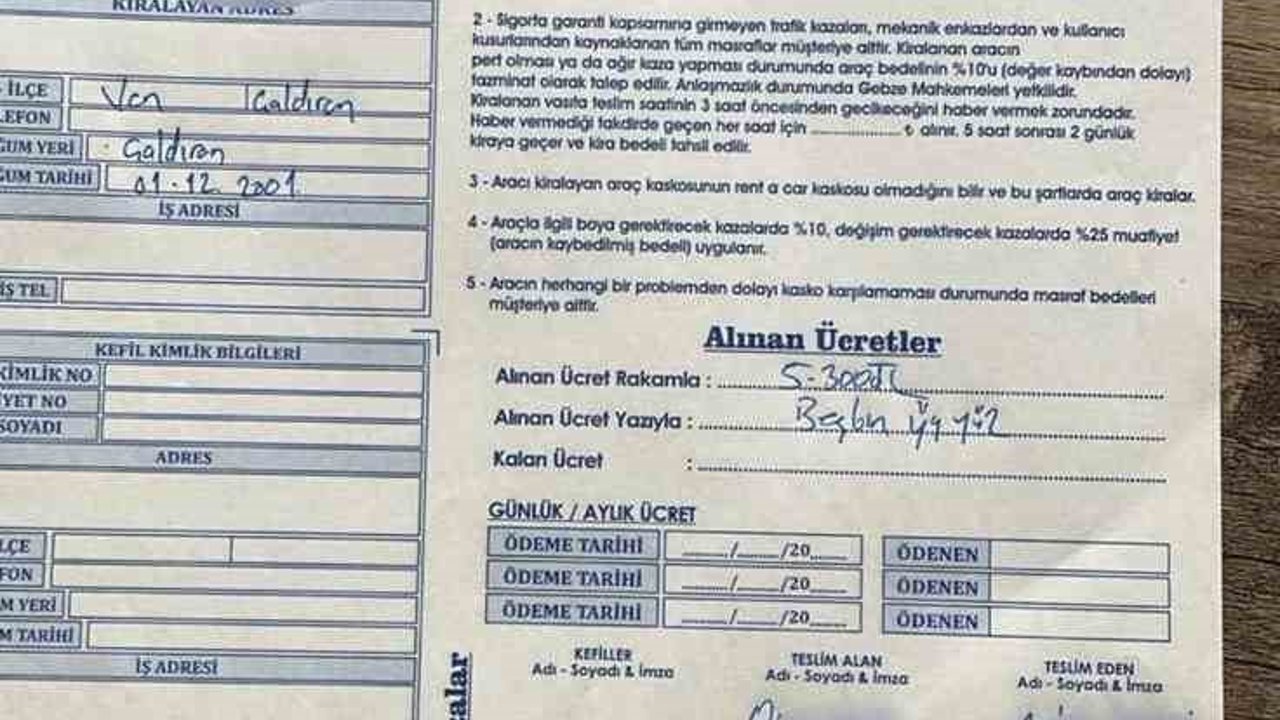 KİRALAYAN ADRES
İLÇE Van Çaldıran
LEFON
ĞUM YERİ Çaldıran
ĞUM TARİHİ 01.12.2001
İŞ ADRESİ
İŞ TEL
KEFİL KİMLİK BİLGİLERİ
KİMLİK NO
YET NO
SOYADI
ADRES
LÇE
FON
M YERİ
M TARİHİ
İŞ ADRESİ
2 - Sigorta garanti kapsamına girmeyen trafik kazaları, mekanik enkazlardan ve kullanıcı
kusurlarından kaynaklanan tüm masraflar müşteriye aittir. Kiralanan aracın
pert olması ya da ağır kaza yapması durumunda araç bedelinin %10'u (değer kaybından dolayı)
tazminat olarak talep edilir. Anlaşmazlık durumunda Gebze Mahkemeleri yetkilidir.
Kiralanan vasıta teslim saatinin 3 saat öncesinden gecikeceğini haber vermek zorundadır.
Haber vermediği takdirde geçen her saat için ................... ₺ alınır. 5 saat sonrası 2 günlük
kiraya geçer ve kira bedeli tahsil edilir.
3 - Aracı kiralayan araç kaskosunun rent a car kaskosu olmadığını bilir ve bu şartlarda araç kiralar.
4 - Araçla ilgili boya gerektirecek kazalarda %10, değişim gerektirecek kazalarda %25 muafiyet
(aracın kaybedilmiş bedeli) uygulanır.
5 - Aracın herhangi bir problemden dolayı kasko karşılamaması durumunda masraf bedelleri
müşteriye aittir.
Alınan Ücretler
Alınan Ücret Rakamla : 5-300TL
Alınan Ücret Yazıyla : Beşbin üç yüz
Kalan Ücret :
GÜNLÜK / AYLIK ÜCRET
ÖDEME TARİHİ ....../....../20...... ÖDENEN
ÖDEME TARİHİ ....../....../20...... ÖDENEN
ÖDEME TARİHİ ....../....../20...... ÖDENEN
KEFİLLER TESLİM ALAN TESLİM EDEN
Adı - Soyadı & İmza Adı - Soyadı & İmza Adı - Soyadı & İmza